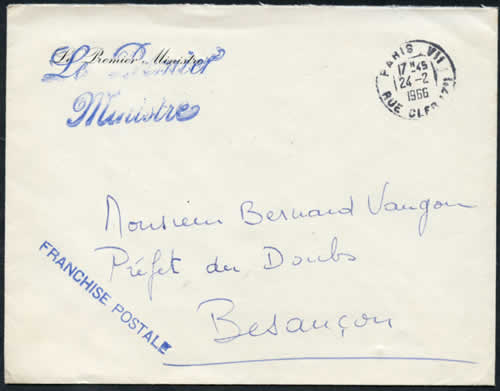 Le Premier Ministre
Le Premier
Ministre
PARIS VII
17H45
24-2
1966
RUE CLER (7E)
Monsieur Bernard Vaugon
Préfet du Doubs
Besançon
FRANCHISE POSTALE